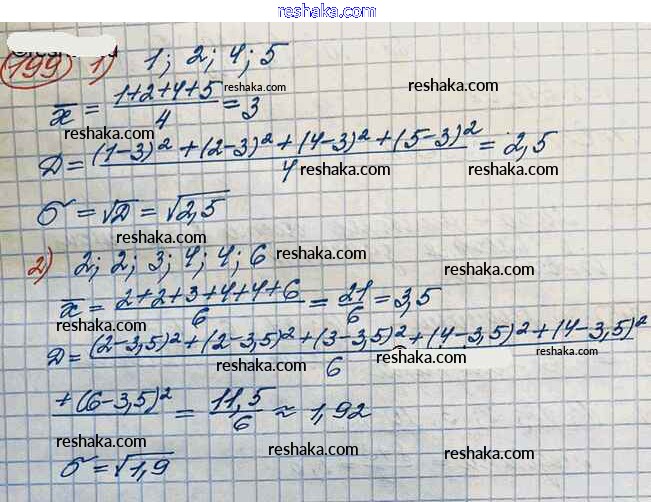 reshaka.com
199 1) 1; 2; 4; 5
x̄ = (1+2+4+5)/4 = 3
reshaka.com
reshaka.com
reshaka.com
D = ((1-3)² + (2-3)² + (4-3)² + (5-3)²)/4 = 2,5
reshaka.com
reshaka.com
σ = √D = √2,5
reshaka.com
2) 2; 2; 3; 4; 4; 6
reshaka.com
x̄ = (2+2+3+4+4+6)/6 = 21/6 = 3,5
reshaka.com
reshaka.com
D = ((2-3,5)² + (2-3,5)² + (3-3,5)² + (4-3,5)² + (4-3,5)²
reshaka.com
reshaka.com
reshaka.com
+ (6-3,5)²)/6 = 11,5/6 ≈ 1,92
reshaka.com
reshaka.com
reshaka.com
σ = √1,9
reshaka.com